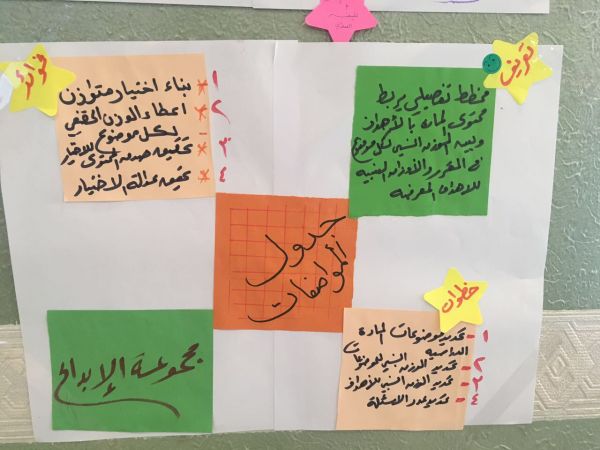 تعريف
مخطط تفصيلي يربط
محتوى المادة بالأهداف
ويبين الوزن النسبي لكل موضوع
في المقرر والأوزان النسبية
للأهداف المعرفية
فوائد
١ * بناء اختبار متوازن
٢ * اعطاء الوزن الحقيقي
- لكل موضوع
٣ * تحقيق صدق المحتوى للاختبار
٤ * تحقيق عدالة الاختبار
جدول
المواصفات
خطوات
١ - تحديد موضوعات المادة
الدراسية
٢ - تحديد الوزن النسبي للموضوعات
٣ - تحديد الوزن النسبي للأهداف
٤ - تحديد عدد الاسئلة
مجموعة الإبداع